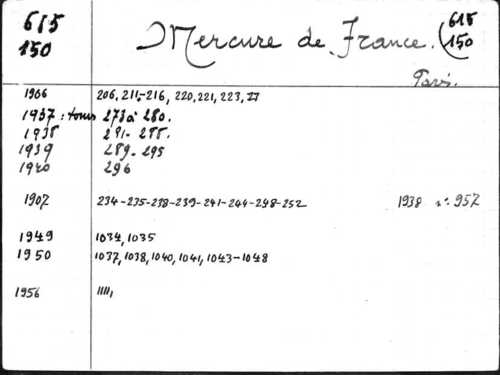 615
150
Mercure de France. (615
150
Paris.
1906 206, 211-216, 220, 221, 223,
1937 : tomes 273 à 280.
1938 281-288.
1939 289-295
1940 296
1907 234-235-238-239-241-244-248-252 1938 n° 957
1949 1034, 1035
1950 1037, 1038, 1040, 1041, 1043-1048
1956 1111,